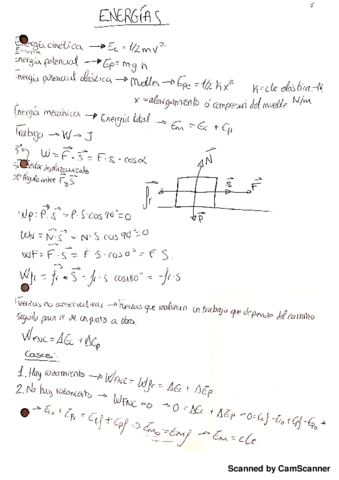 ENERGÍAS
Energía cinética → Ec = 1/2 mv²
Energía potencial → Ep = mgh
Energía potencial elástica → Muelles → Epe = 1/2 Kx²  K = cte elástica → N/m
x = alargamiento ó compresión del muelle
Energía mecánica → Energía total → Em = Ec + Ep
Trabajo → W → J
W = F · S = F · S · cosα
desplazamiento
ángulo entre F y S
N
fr
S
F
P
Wp = P · S = P · S · cos 90° = 0
WN = N · S = N · S cos 90° = 0
WF = F · S = F · S · cos 0° = F S.
Wfr = fr · S = fr · S cos 180° = -fr · S
Fuerzas no conservativas → Fuerzas que realizan un trabajo que depende del camino
seguido para ir de un punto a otro.
WFNC = ΔEc + ΔEp
Casos:
1. Hay rozamiento → WFNC = Wfr = ΔEc + ΔEp
2. No hay rozamiento → WFNC = 0 → 0 = ΔEc + ΔEp → 0 = Ecf - Eco + Epf - Epo →
→ Eco + Epo = Ecf + Epf → Emo = Emf → Em = cte
Scanned by CamScanner